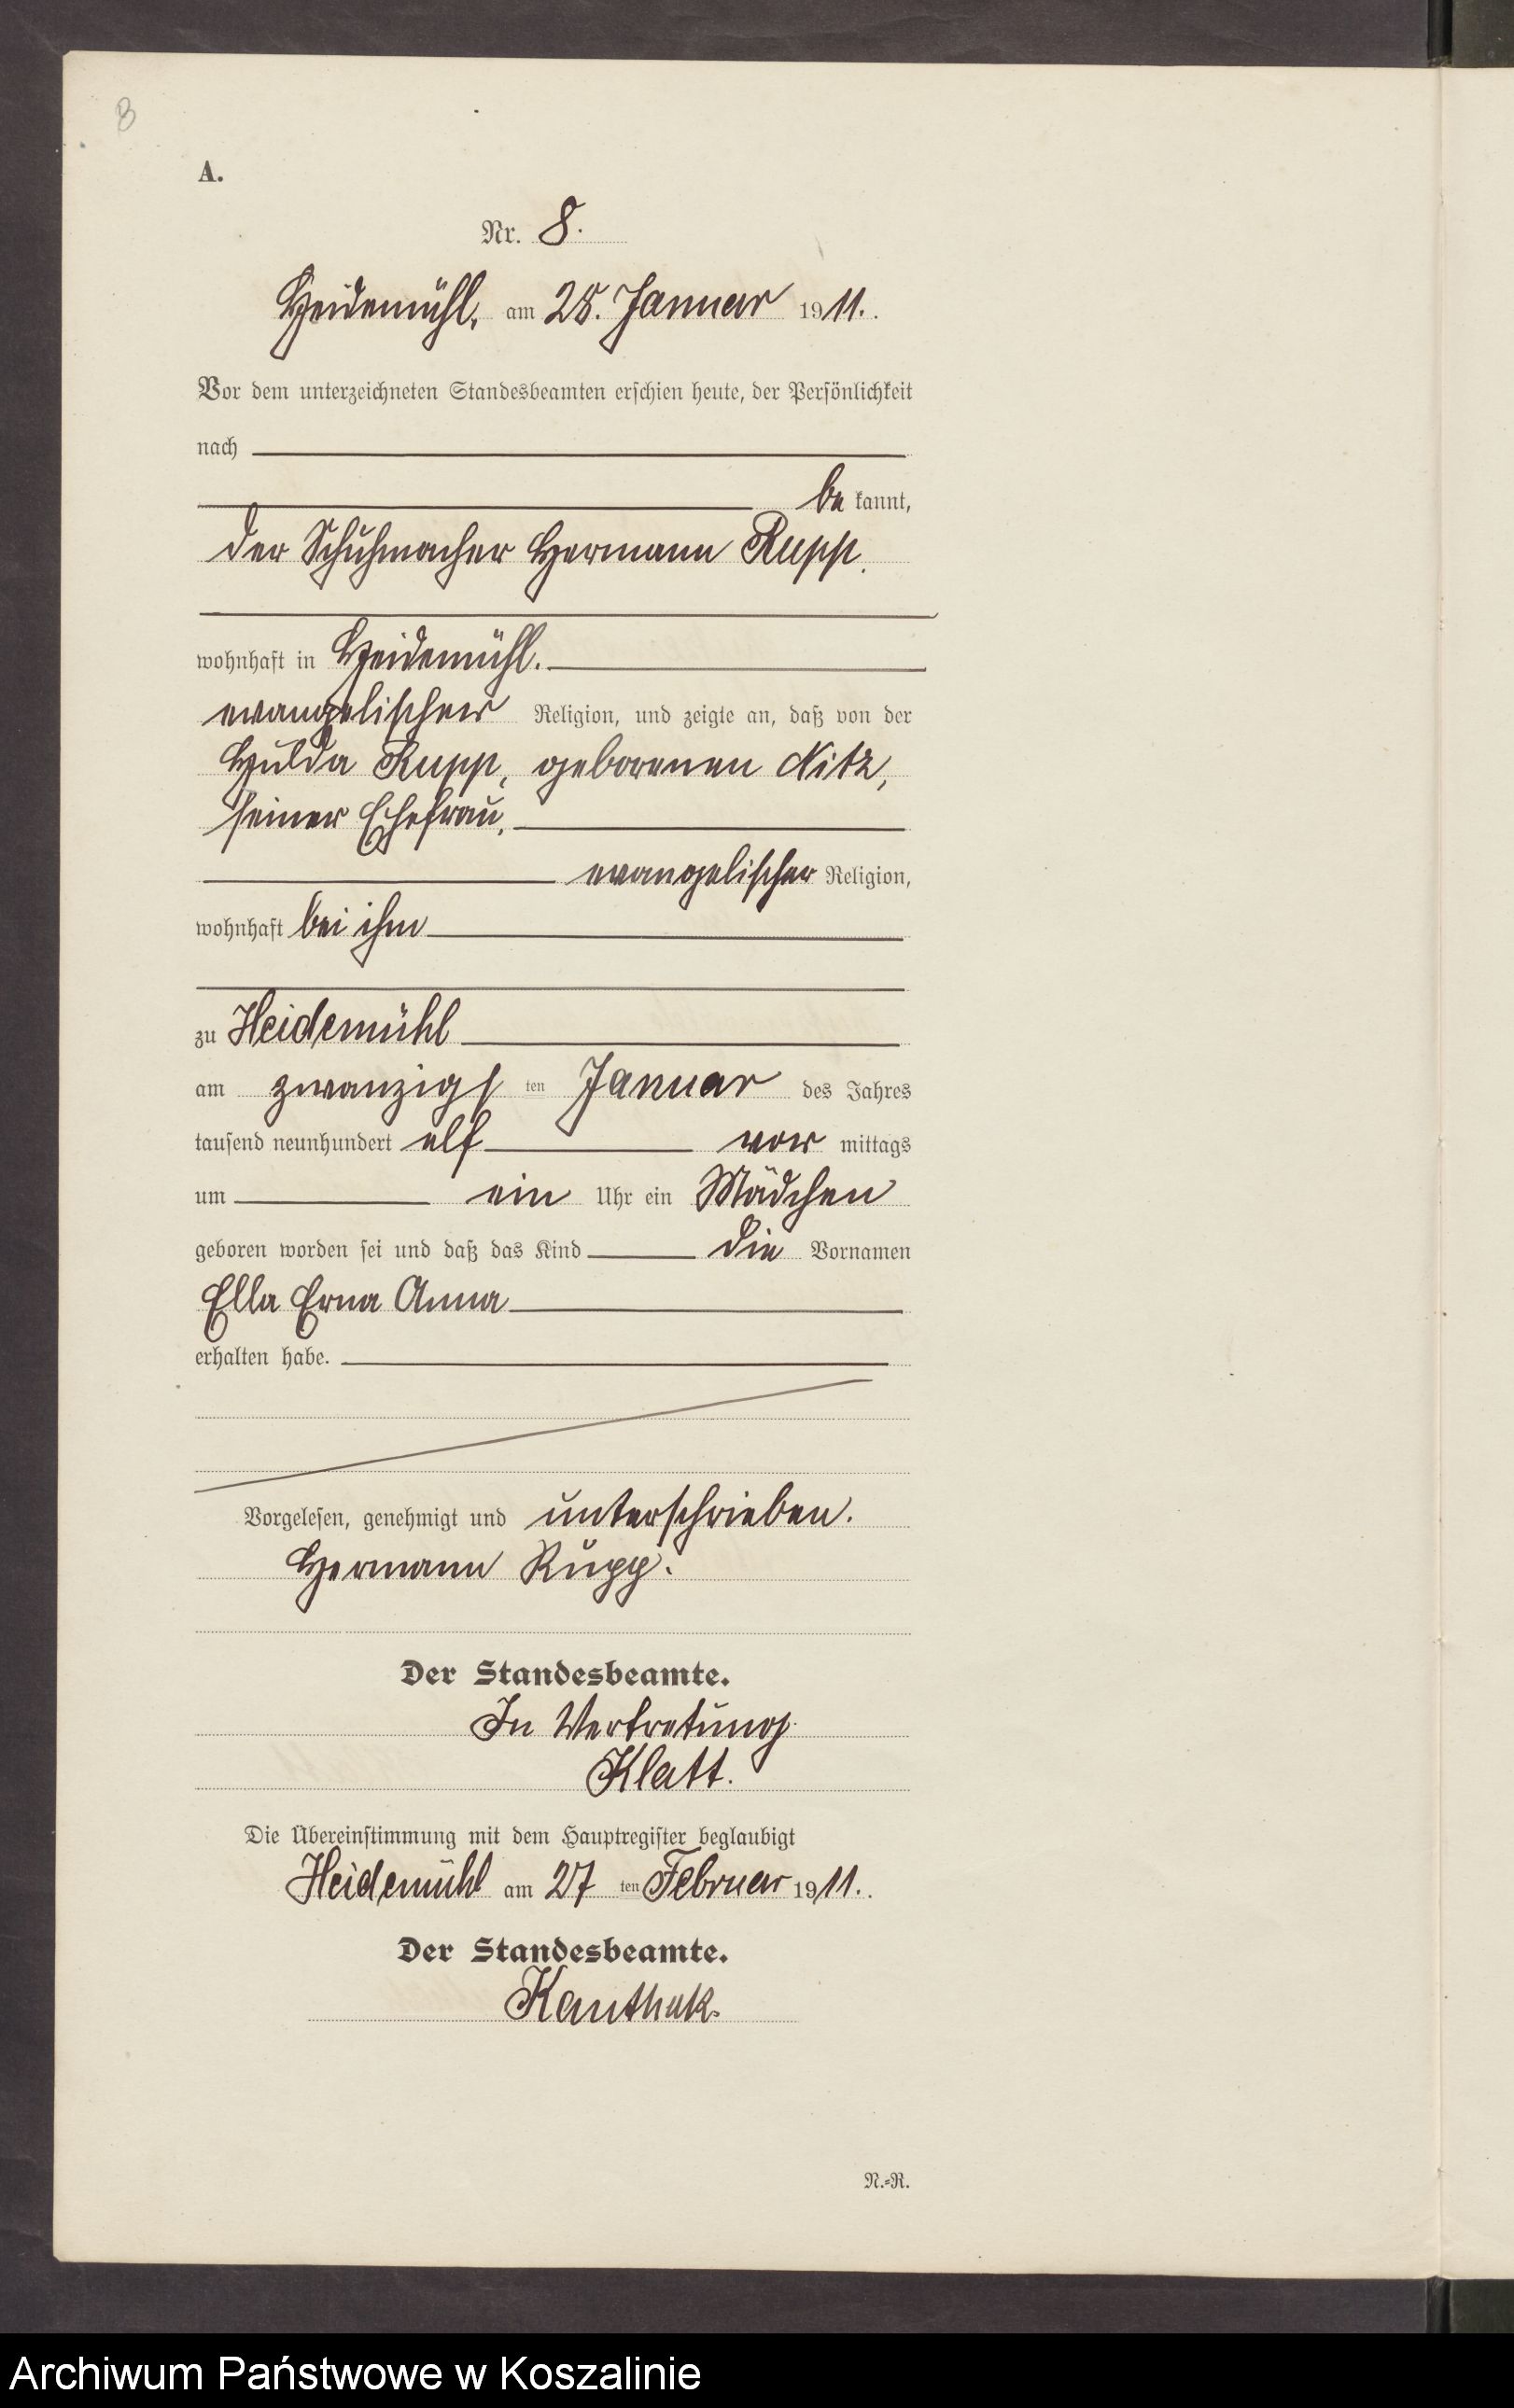 8
A.
Nr. 8.
Heidemühl, am 25. Januar 1911.
Vor dem unterzeichneten Standesbeamten erschien heute, der Persönlichkeit
nach
be kannt,
der Schuhmacher Hermann Rupp.
wohnhaft in Heidemühl.
evangelischer Religion, und zeigte an, daß von der
Hulda Rupp, geborenen Nitz,
seiner Ehefrau,
evangelischer Religion,
wohnhaft bei ihm
zu Heidemühl
am zwanzigs ten Januar des Jahres
tausend neunhundert elf vor mittags
um ein Uhr ein Mädchen
geboren worden sei und daß das Kind die Vornamen
Ella Erna Anna
erhalten habe.
Vorgelesen, genehmigt und unterschrieben.
Hermann Rupp.
Der Standesbeamte.
In Vertretung
Klatt.
Die Übereinstimmung mit dem Hauptregister beglaubigt
Heidemühl am 27 ten Februar 1911.
Der Standesbeamte.
N.=R.
Archiwum Państwowe w Koszalinie